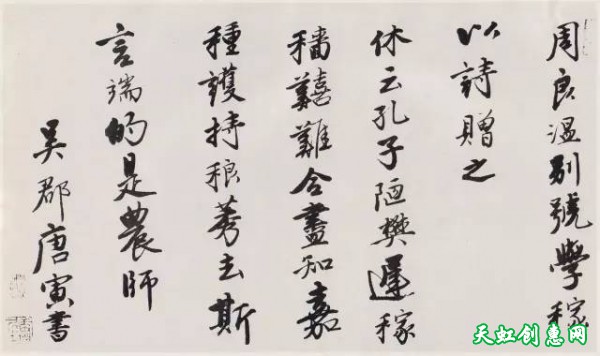 周良温别號學稼
以詩贈之
休云孔子陋樊遲稼
穡囏難合盡知嘉
種護持稂莠去斯
言端的是農師
吳郡唐寅書
天虹创惠网